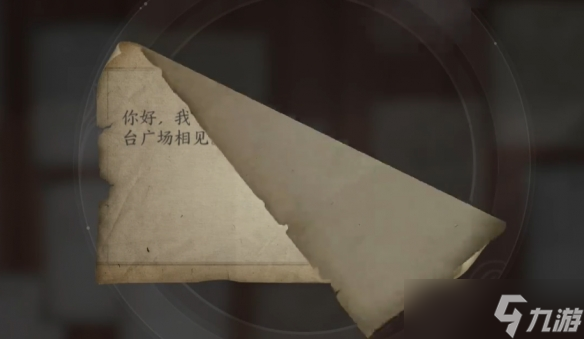 你好，我
台广场相见
九游